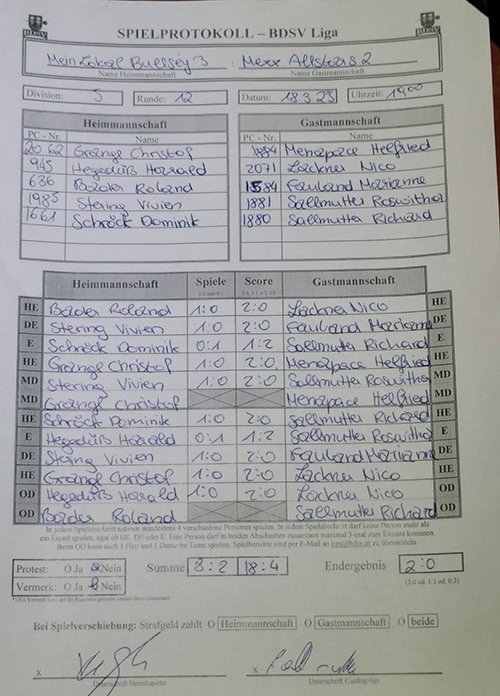 SPIELPROTOKOLL – BDSV Liga
Mein Lokal Bullsey 3 : Merx Allstars 2
Name Heimmannschaft Name Gastmannschaft
Division: 5 Runde: 12 Datum: 18.3.23 Uhrzeit: 1900
Heimmannschaft Gastmannschaft
PC - Nr. Name PC - Nr. Name
2062 Grangl Christof 1884 Menapace Helfried
945 Hegedüß Harald 2071 Lackner Nico
636 Bader Roland 1584 Fauland Marianne
1985 Stering Vivien 1881 Sallmutter Roswitha
1661 Schröck Dominik 1880 Sallmutter Richard
Heimmannschaft Spiele Score Gastmannschaft
HE Bader Roland 1:0 2:0 Lackner Nico HE
DE Stering Vivien 1:0 2:0 Fauland Mariann DE
E Schröck Dominik 0:1 1:2 Sallmutter Richard E
HE Grangl Christof 1:0 2:0 Menapace Helfried HE
MD Stering Vivien 1:0 2:0 Sallmutter Roswitha MD
MD Grangl Christof Menapace Helfried MD
HE Schröck Dominik 1:0 2:0 Sallmutter Richard HE
E Hegedüß Harald 0:1 1:2 Sallmutter Roswitha E
DE Stering Vivien 1:0 2:0 Fauland Mariann DE
HE Grangl Christof 1:0 2:0 Lackner Nico HE
OD Hegedüß Harald 1:0 2:0 Lackner Nico OD
OD Bader Roland Sallmutter Richard OD
In jedem Spielabschnitt müssen mindestens 4 verschiedene Personen spielen. In jedem Spielabschnitt darf keine Person mehr als
ein Einzel spielen, egal ob HE, DE oder E. Eine Person darf in beiden Abschnitten zusammen maximal 3-mal zum Einsatz kommen.
Beim OD kann auch 1 Herr und 1 Dame im Team spielen. Spielberichte sind per E-Mail an zu übermitteln
Protest: O Ja O Nein Summe 8:2 18:4 Endergebnis 2:0
Vermerk: O Ja O Nein (2:0 od. 1:1 od. 0:2)
Bei Spielverschiebung: Strafgeld zahlt O Heimmannschaft O Gastmannschaft O beide
x x
Unterschrift Heimkapitän Unterschrift Gastkapitän